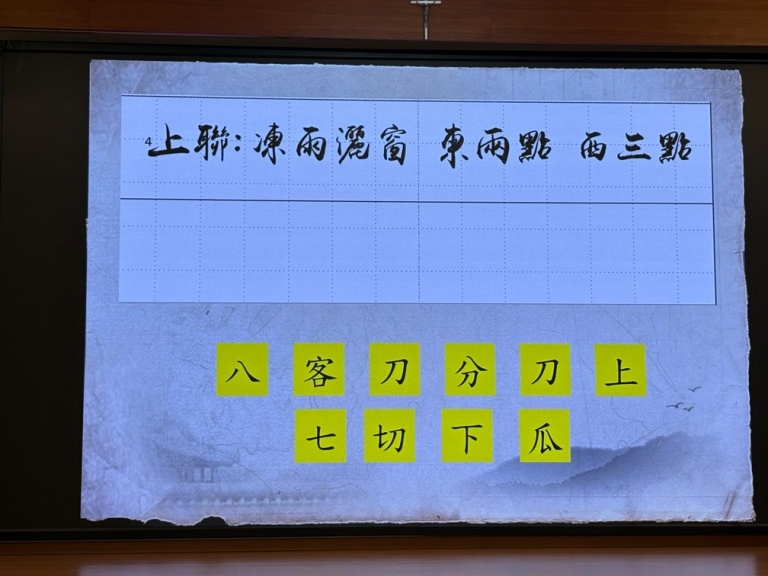 4上聯:凍雨灑窗 東兩點 西三點
八 客 刀 分 刀 上
七 切 下 瓜